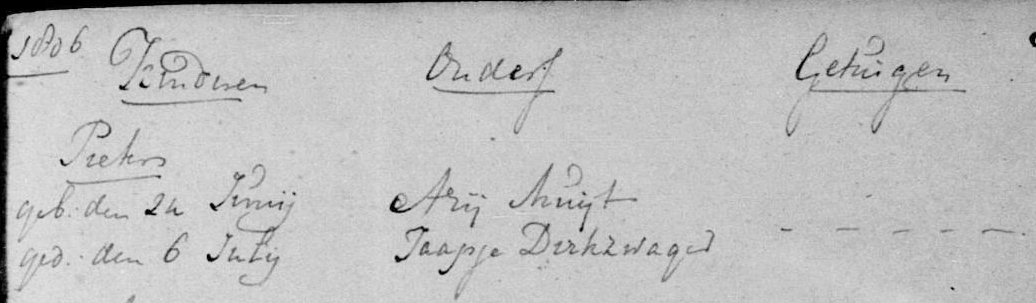 1806
Kinderen Ouders Getuigen
Pieter
geb. den 24 Junij Arij
ged. den 6 Julij Jaapje Dirkzwager - - - - -